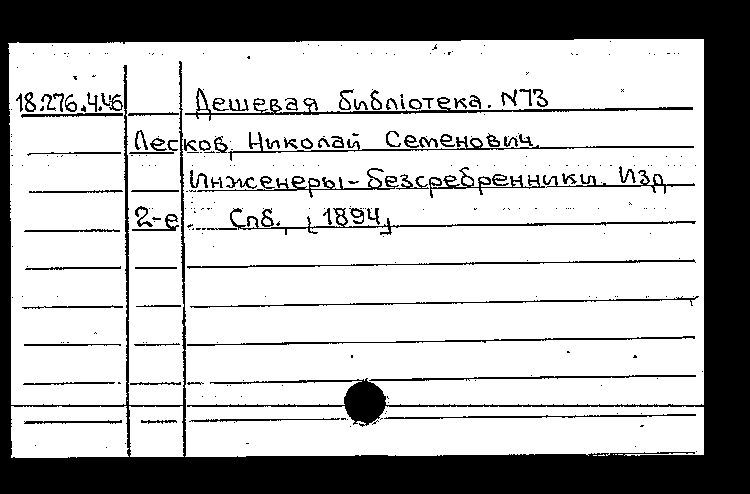 18.276.4.46 Дешевая библіотека. N73
Лесков, Николай Семенович.
Инженеры-безсребренники. Изд.
2-е. Спб., [1894]